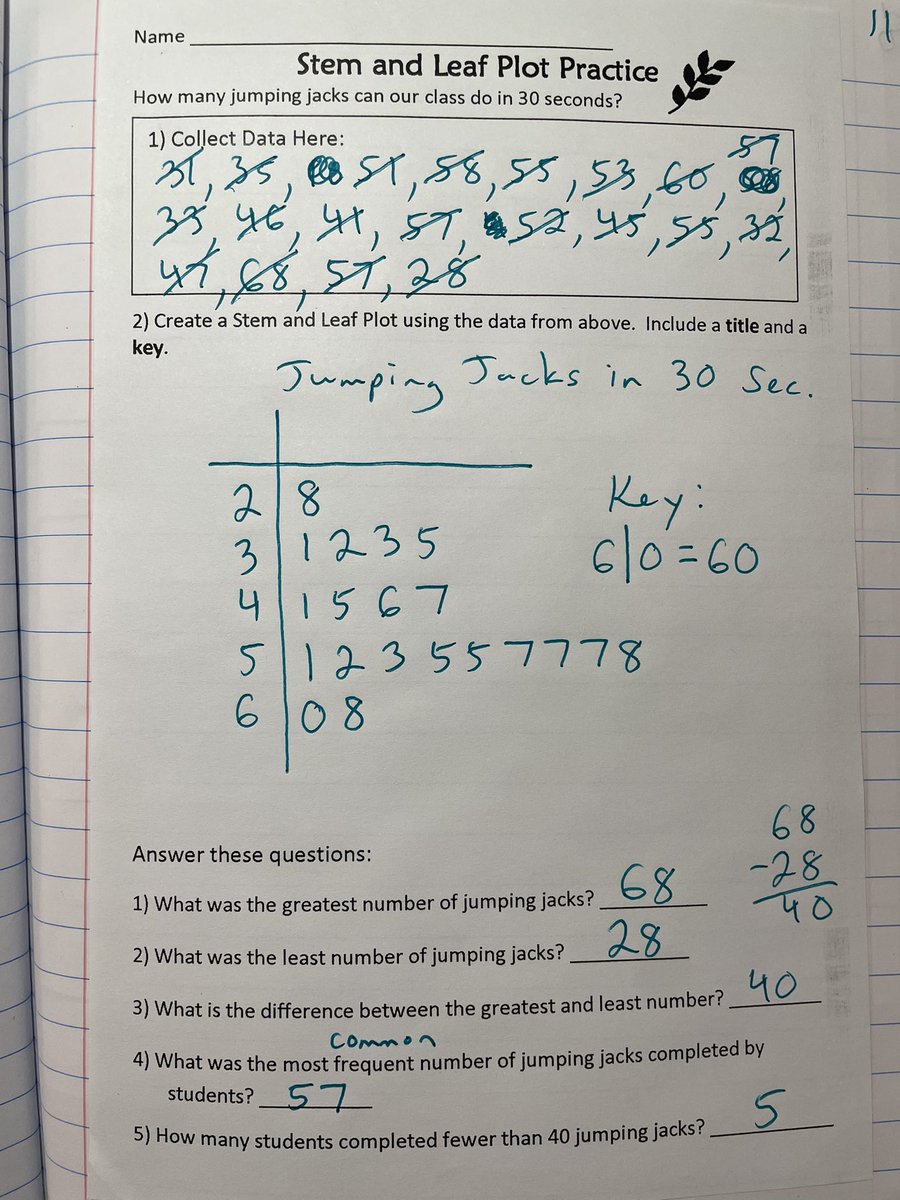 11
Name
Stem and Leaf Plot Practice
How many jumping jacks can our class do in 30 seconds?
1) Collect Data Here:
57
31, 35, 51, 58, 55, 53, 60,
33, 46, 41, 57, 52, 45, 55, 32,
47, 68, 57, 28
2) Create a Stem and Leaf Plot using the data from above. Include a title and a
key.
Jumping Jacks in 30 Sec.
2 | 8
3 | 1 2 3 5
4 | 1 5 6 7
5 | 1 2 3 5 5 7 7 7 8
6 | 0 8
Key:
6|0 = 60
Answer these questions:
1) What was the greatest number of jumping jacks? 68
2) What was the least number of jumping jacks? 28
3) What is the difference between the greatest and least number? 40
68
-28
40
common
4) What was the most frequent number of jumping jacks completed by
students? 57
5) How many students completed fewer than 40 jumping jacks? 5